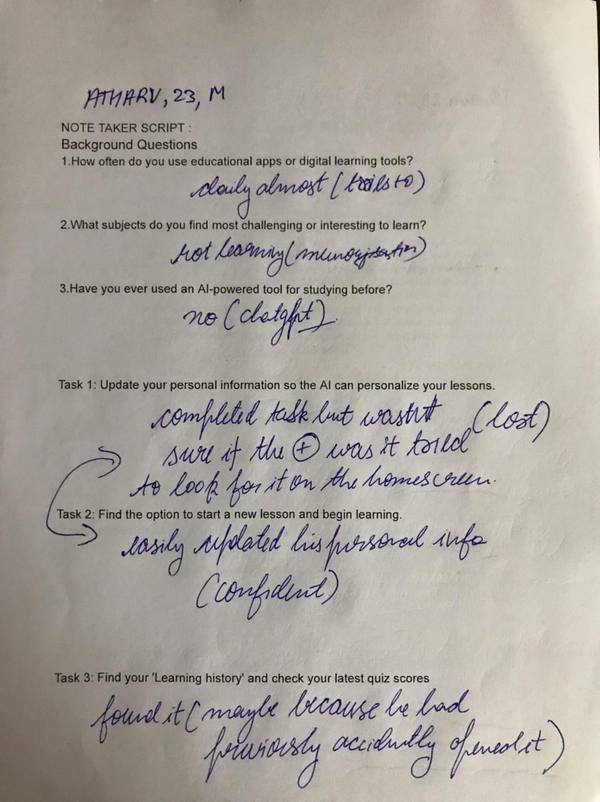 ATHARV, 23, M
NOTE TAKER SCRIPT :
Background Questions
1.How often do you use educational apps or digital learning tools?
daily almost (tries to)
2.What subjects do you find most challenging or interesting to learn?
rot learning (memorisation)
3.Have you ever used an AI-powered tool for studying before?
no (chatgpt)
Task 1: Update your personal information so the AI can personalize your lessons.
completed task but wasn't (lost)
sure if the + was it tried
to look for it on the homescreen.
Task 2: Find the option to start a new lesson and begin learning.
easily updated his personal info
(confident)
Task 3: Find your 'Learning history' and check your latest quiz scores
found it (maybe because he had
previously accidently opened it)